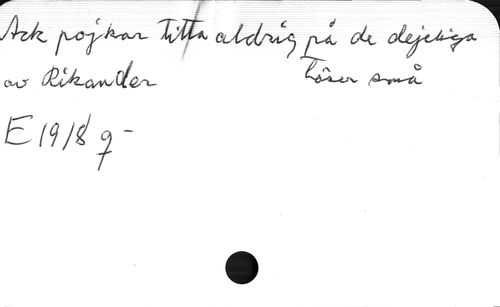 Ack pojkar titta aldrig på de dejeliga
töser små
av Rikander
E 1918 9 -